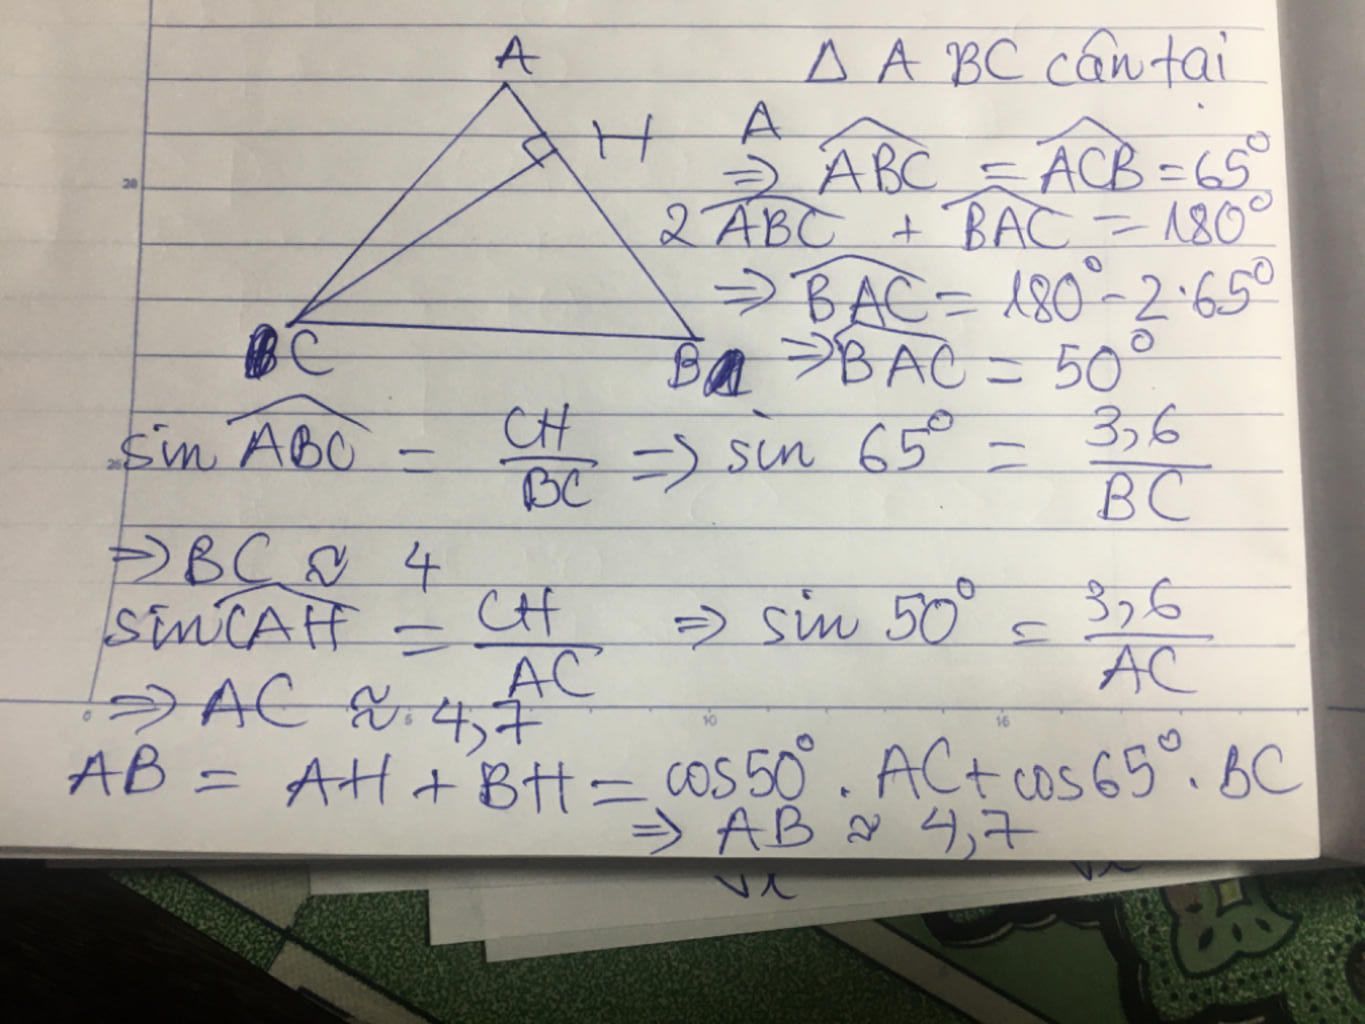 A
Δ ABC cân tại
H
A
⇒ \widehat{ABC} = \widehat{ACB} = 65°
20
2\widehat{ABC} + \widehat{BAC} = 180°
⇒ \widehat{BAC} = 180° - 2·65°
C
B
⇒ \widehat{BAC} = 50°
sin \widehat{ABC} = CH/BC ⇒ sin 65° = 3,6/BC
⇒ BC ≈ 4
sin \widehat{CAH} = CH/AC ⇒ sin 50° = 3,6/AC
⇒ AC ≈ 4,7
0 5 10 15
AB = AH + BH = cos50° . AC + cos65° . BC
⇒ AB ≈ 4,7